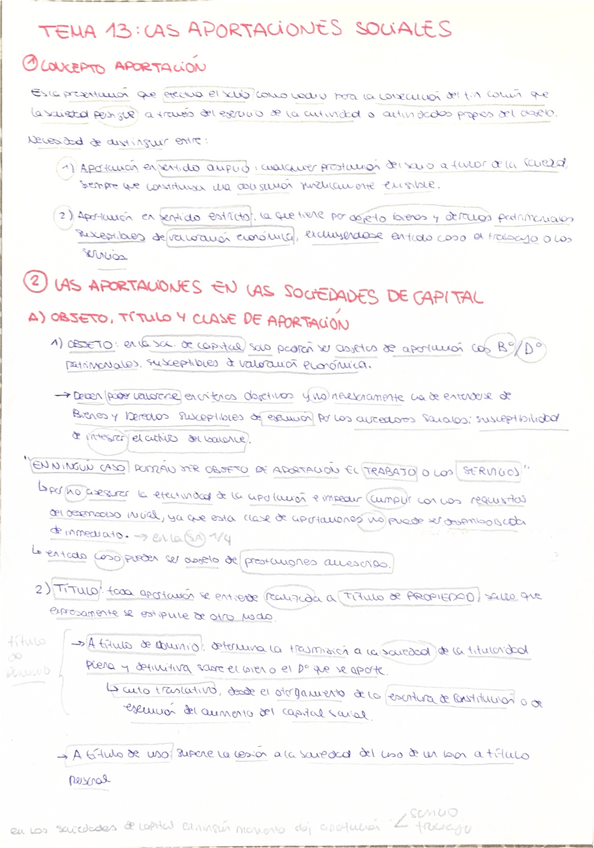 TEMA 13: LAS APORTACIONES SOCIALES
① CONCEPTO APORTACIÓN
Es la prestación que efectúa el socio como medio para la consecución del fin común que
la sociedad persigue a través del ejercicio de la actividad o actividades propias del objeto.
Necesidad de distinguir entre:
1) Aportación en sentido amplio: cualquier prestación del socio a favor de la sociedad,
siempre que constituya una obligación jurídicamente exigible.
2) Aportación en sentido estricto: la que tiene por objeto bienes y derechos patrimoniales
susceptibles de valoración económica, excluyéndose en todo caso el trabajo o los
servicios
② LAS APORTACIONES EN LAS SOCIEDADES DE CAPITAL
A) OBJETO, TÍTULO Y CLASE DE APORTACIÓN
1) OBJETO: en la soc. de capital solo podrán ser objetos de aportación los Bº/Dº
patrimoniales, susceptibles de valoración económica.
→ Deben poder valorarse en criterios objetivos y no necesariamente ha de entenderse de
Bienes y Derechos susceptibles de ejecución por los acreedores sociales: susceptibilidad
de integrar el activo del balance.
"EN NINGÚN CASO PODRÁN SER OBJETO DE APORTACIÓN EL TRABAJO O LOS SERVICIOS"
↳ por no asegurar la efectividad de la aportación e impedir cumplir con los requisitos
del desembolso inicial, ya que esta clase de aportaciones no puede ser desembolsada
de inmediato. → en la SA 1/4
↳ en todo caso pueden ser objeto de prestaciones accesorias.
2) TÍTULO: toda aportación se entiende realizada a TÍTULO DE PROPIEDAD, salvo que
expresamente se estipule de otro modo.
título
de
dominio
→ A título de dominio: determina la trasmisión a la sociedad de la titularidad
plena y definitiva sobre el bien o el Dº que se aporte.
↳ acto traslativo, desde el otorgamiento de la escritura de constitución o de
ejecución del aumento del capital social.
→ A título de uso: supone la cesión a la sociedad del uso de un bien a título
personal
en las sociedades de capital en ningún momento obj aportación < servicio
trabajo